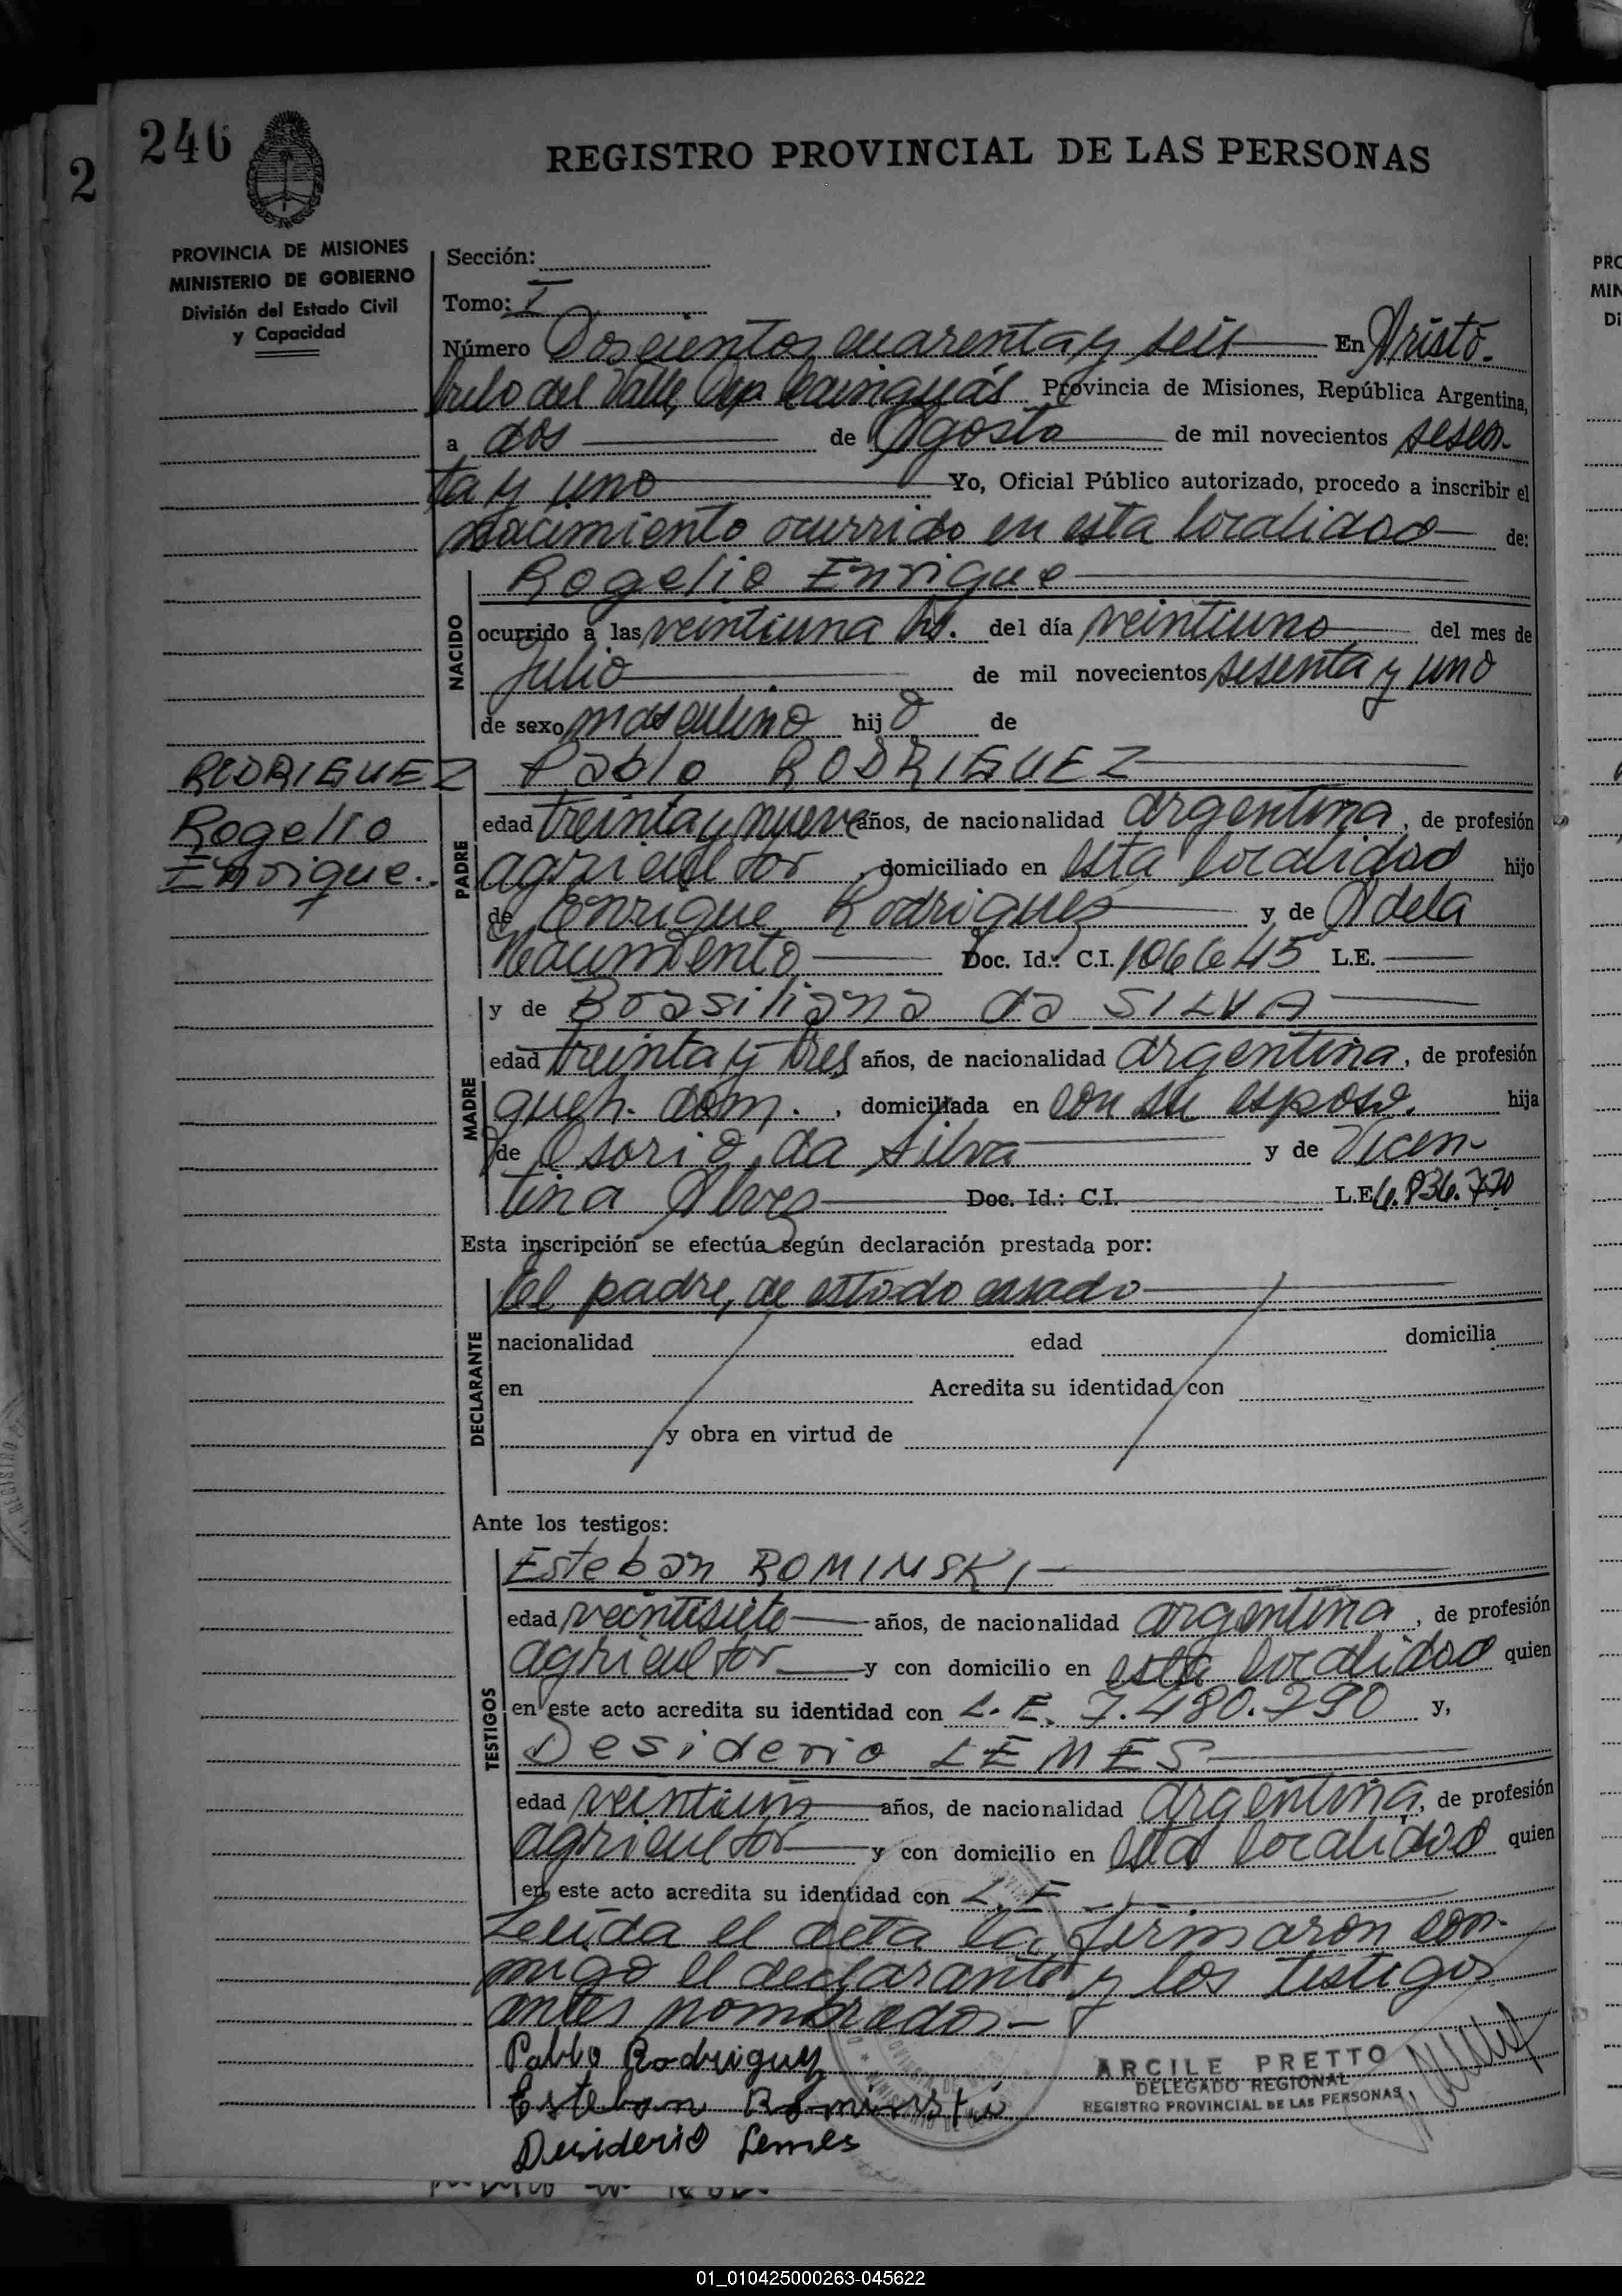 246
2
REGISTRO PROVINCIAL DE LAS PERSONAS
PROVINCIA DE MISIONES
MINISTERIO DE GOBIERNO
División del Estado Civil
y Capacidad
Sección:
Tomo: I
Número Doscientos cuarenta y seis En Aristó-
bulo del Valle, Dep. Cainguás Provincia de Misiones, República Argentina,
a dos de Agosto de mil novecientos sesen-
ta y uno Yo, Oficial Público autorizado, procedo a inscribir el
nacimiento ocurrido en esta localidad de:
NACIDO
Rogelio Enrique
ocurrido a las veintiuna hs. del día veintiuno del mes de
Julio de mil novecientos sesenta y uno
de sexo masculino hijo de
RODRIGUEZ
Rogelio
Enrique.
PADRE
Pablo RODRIGUEZ
edad treinta y nueve años, de nacionalidad argentina, de profesión
agricultor, domiciliado en esta localidad hijo
de Enrique Rodriguez y de Adela
Nacimiento Doc. Id.: C.I. 106645 L.E.
MADRE
y de Brasiliana da SILVA
edad treinta y tres años, de nacionalidad argentina, de profesión
queh. dom., domiciliada en con su esposo. hija
de Osorio da Silva y de Vicen-
tina Alves Doc. Id.: C.I. L.E. 6.836.770
Esta inscripción se efectúa según declaración prestada por:
DECLARANTE
el padre, de estado casado
nacionalidad edad domicilia
en Acredita su identidad con
y obra en virtud de
Ante los testigos:
TESTIGOS
Esteban ROMINSKI
edad veintisiete años, de nacionalidad argentina, de profesión
agricultor y con domicilio en esta localidad quien
en este acto acredita su identidad con L.E. 7.480.790 y,
Desiderio LEMES
edad años, de nacionalidad argentina, de profesión
agricultor y con domicilio en esta localidad quien
en este acto acredita su identidad con L.E.
Leída el acta la firmaron con-
migo el declarante y los testigos
antes nombrados.-
Pablo Rodriguez
Esteban Rominski
Desiderio Lemes
ARCILE PRETTO
DELEGADO REGIONAL
REGISTRO PROVINCIAL DE LAS PERSONAS
PRO
MIN
Di
01_010425000263-045622